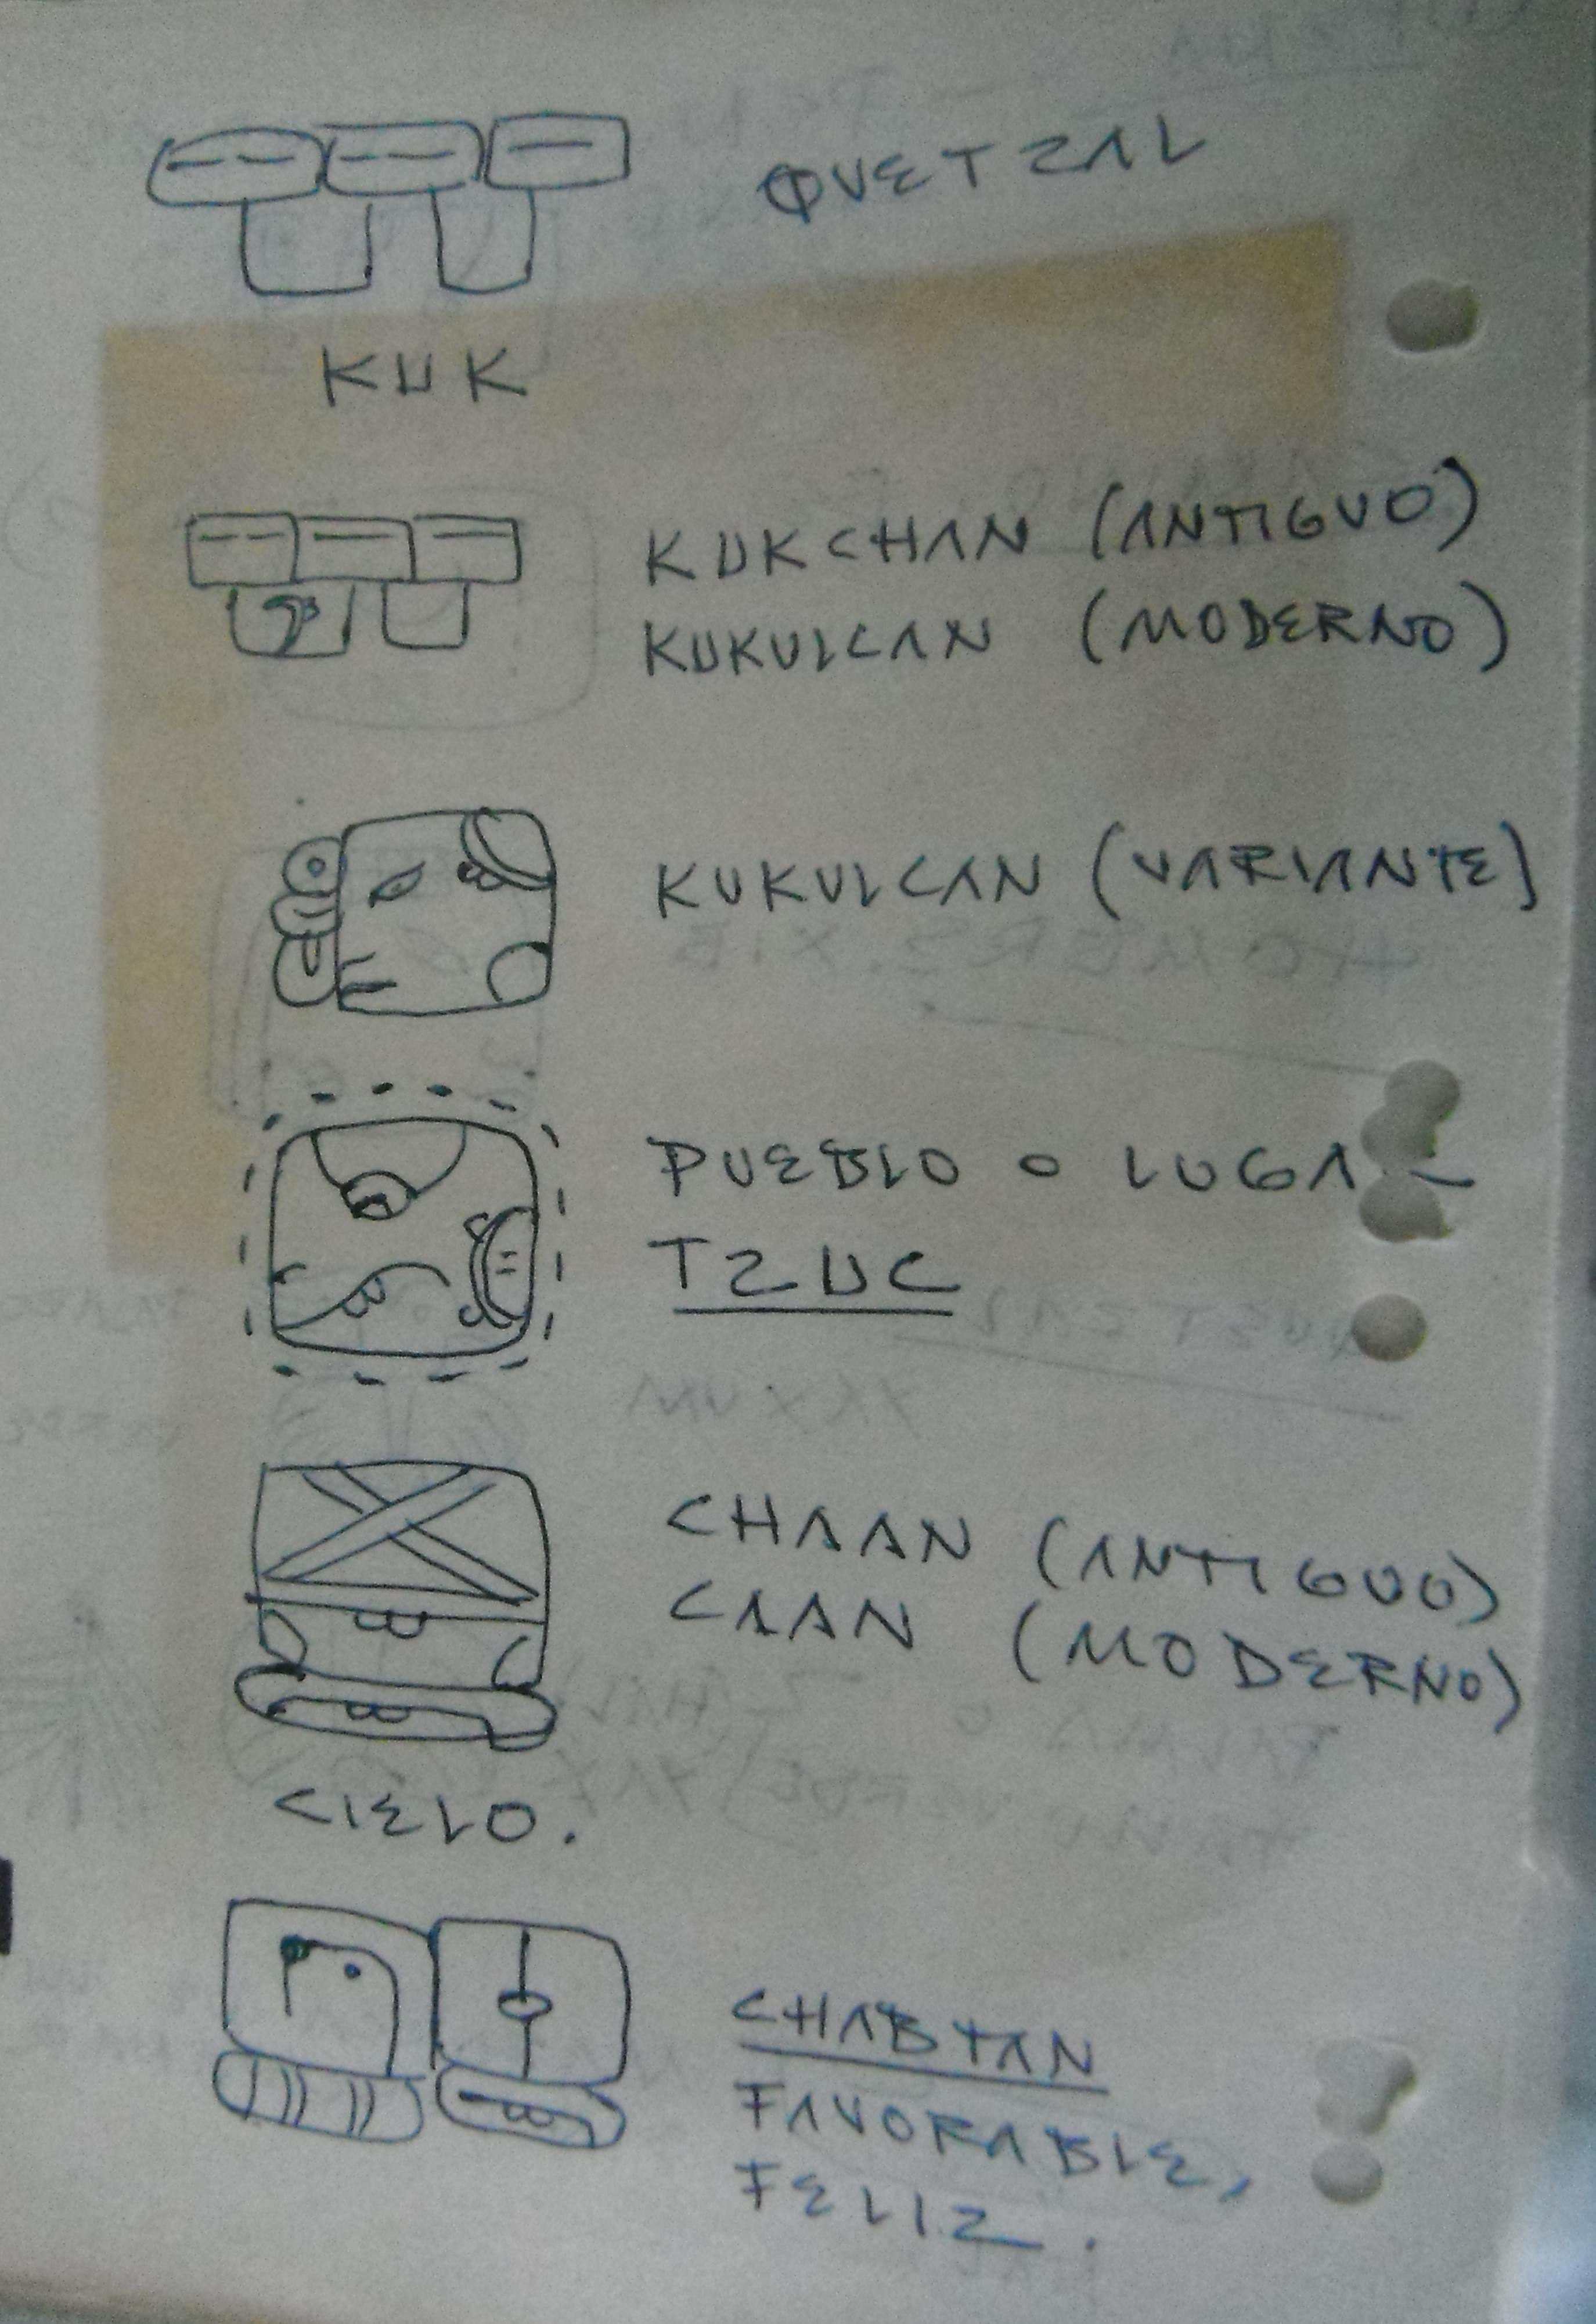 QUETZAL
KUK
KUKCHAN (ANTIGUO)
KUKULCAN (MODERNO)
KUKULCAN (VARIANTE)
PUEBLO O LUGAR
TZUC
CHAAN (ANTIGUO)
CAAN (MODERNO)
CIELO.
CHABTAN
FAVORABLE,
FELIZ.